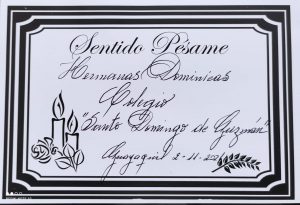 Sentido Pésame
Hermanas Dominicas
Colegio
"Santo Domingo de Guzmán"
Guayaquil 2-11-